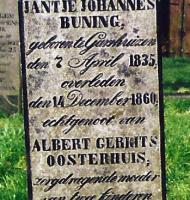 JANTJE JOHANNES
BUNING,
geboren te Garnhuizen
den 7 April 1835,
overleden
den 14 December 1860,
echtgenoot van
ALBERT GERRITS
OOSTERHUIS,
zorgdragende moeder
van twee kinderen